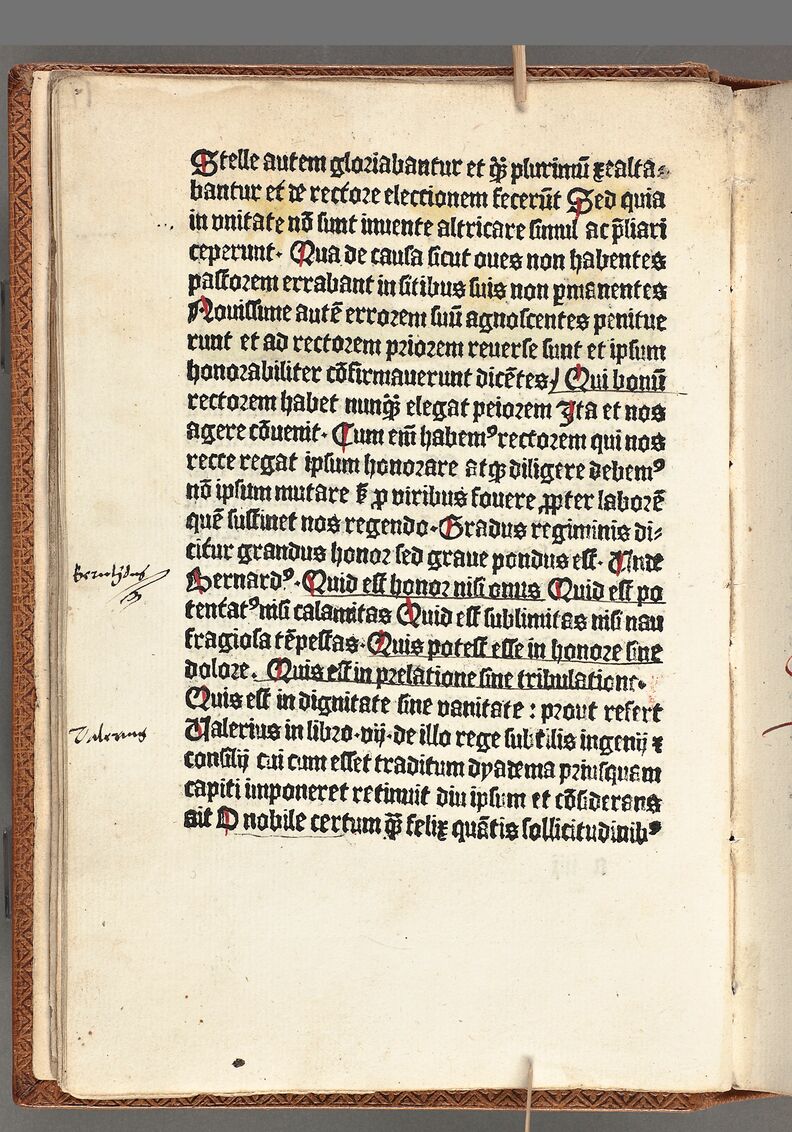 Stelle autem gloriabantur et qͣ̃ plurimū exalta⸗
bantur et de rectore electionem fecerūt Sed quia
in vnitate nō sunt inuente altricare simul ac p̄liari
ceperunt. Qua de causa sicut oues non habentes
pastorem errabant in sitibus suis non ꝑmanentes
Nouissime autē errorem suū agnoscentes penitue
runt et ad rectorem priorem reuerse sunt et ipsum
honorabiliter cōfirmauerunt dicētes/ Qui bonū
rectorem habet nunqͣ̃ elegat peiorem Ita et nos
agere cōuenit. Cum em̄ habemꝰ rectorem qui nos
recte regat ipsum honorare atqꝫ diligere debemꝰ
nō ipsum mutare ß ꝓ viribus fouere ꝓpter laborē
quē sustinet nos regendo. Gradus regiminis di⸗
citur grandus honor sed graue pondus est. Unde
Bernardꝰ. Quid est honor nisi onus Quid est po
tentatꝰ nisi calamitas Quid est sublimitas nisi nau
fragiosa tēpestas. Quis potest esse in honore sine
dolore. Quis est in prelatione sine tribulatione.
Quis est in dignitate sine vanitate : prout refert
Valerius in libro .vij. de illo rege subtilis ingenij ⁊
consilij cui cum esset traditum dyadema priusquam
capiti imponeret retinuit diu ipsum et cōsiderans
ait O nobile certum qͣ̃ felix quātis sollicitudinibꝰ
Valerius